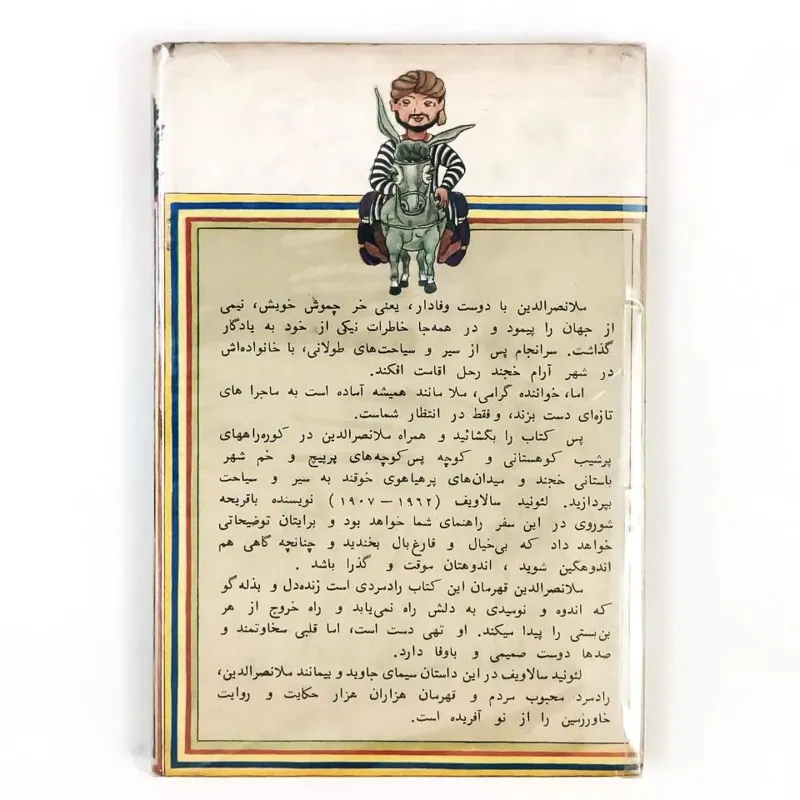 ملانصرالدین با دوست وفادار، یعنی خر چموش خویش، نیمی
از جهان را پیمود و در همه‌جا خاطرات نیکی از خود به یادگار
گذاشت. سرانجام پس از سیر و سیاحت‌های طولانی، با خانواده‌اش
در شهر آرام خجند رحل اقامت افکند.
اما، خواننده گرامی، ملا مانند همیشه آماده است به ماجرا های
تازه‌ای دست بزند، و فقط در انتظار شماست.
پس کتاب را بگشائید و همراه ملانصرالدین در کوره‌راههای
پرشیب کوهستانی و کوچه پس‌کوچه‌های پرپیچ و خم شهر
باستانی خجند و میدان‌های پرهیاهوی خوقند به سیر و سیاحت
بپردازید. لئونید سالاویف (۱۹۶۲ — ۱۹۰۷) نویسنده باقریحه
شوروی در این سفر راهنمای شما خواهد بود و برایتان توضیحاتی
خواهد داد که بی‌خیال و فارغ‌بال بخندید و چنانچه گاهی هم
اندوهگین شوید ، اندوهتان موقت و گذرا باشد .
ملانصرالدین قهرمان این کتاب رادمردی است زنده‌دل و بذله‌گو
که اندوه و نومیدی به دلش راه نمی‌یابد و راه خروج از هر
بن‌بستی را پیدا میکند. او تهی دست است، اما قلبی سخاوتمند و
صدها دوست صمیمی و باوفا دارد.
لئونید سالاویف در این داستان سیمای جاوید و بیمانند ملانصرالدین،
رادمرد محبوب مردم و قهرمان هزاران هزار حکایت و روایت
خاورزمین را از نو آفریده است.